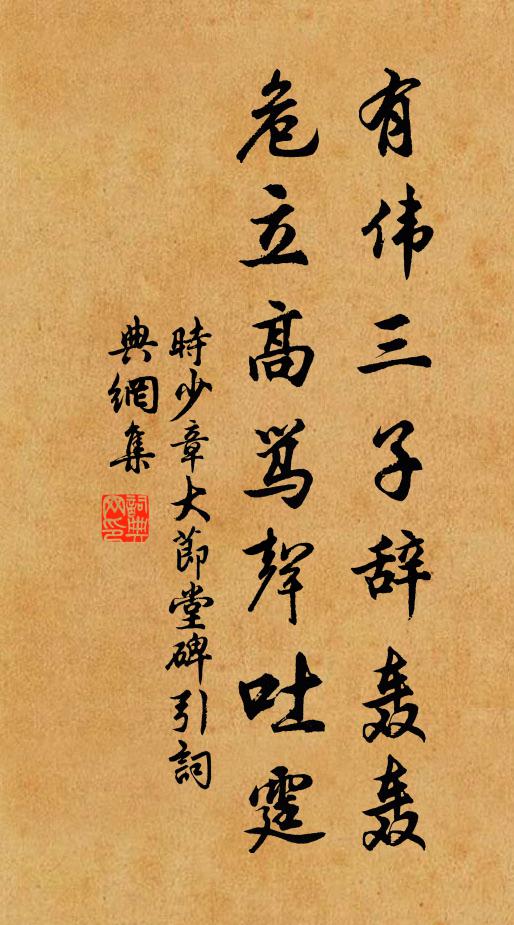 有伟三子辞轰轰
危立高骂聲吐霆
時少章大節堂碑引詞
典網集
詞典網印